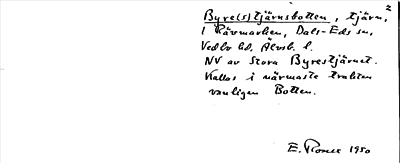 2
Byre(s)tjärnsbotten, tjärn,
i Rävmarken, Dals-Eds sn,
Vedbo hd, Älvsb. l.
NV av Stora Byrestjärnet.
Kallas i närmaste trakten
vanligen Botten.
E. 1950